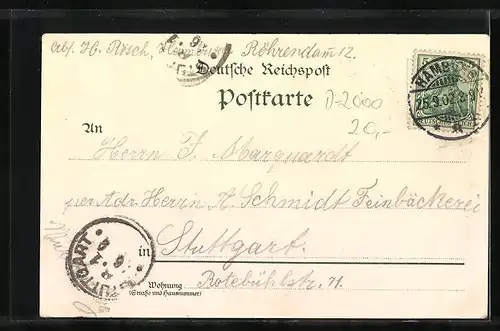 Abs. H. Rösch, Hamburg, Röhrendam 12.
Deutsche Reichspost
Postkarte
D-2000
20,-
HAMBURG
25.3.02.
An
Herrn F. Marquardt
per Adr. Herrn A. Schmidt Feinbäckerei
in Stuttgart.
STUTTGART
Wohnung Rotebühlstr. 71.
(Straße und Hausnummer)